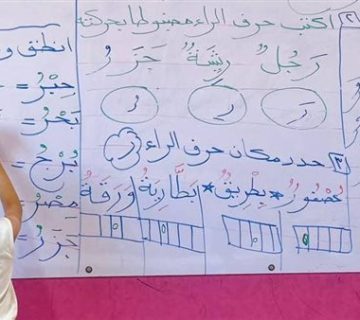 ٢) اكتب حرف الراء مضبوطا بحركته
رَجُلٌ رِيشَةٌ جَزَرٌ
رَ رِ رُ
٣) حدد مكان حرف الراء (ر)
عُصْفُورٌ * بِطْرِيقٌ * بَطَّارِيَةٌ * وَرَقَةٌ
انطق و
حِبْرٌ =
بَحْرٌ =
بُرْجٌ =
مِصْرُ =
جَزَرٌ =